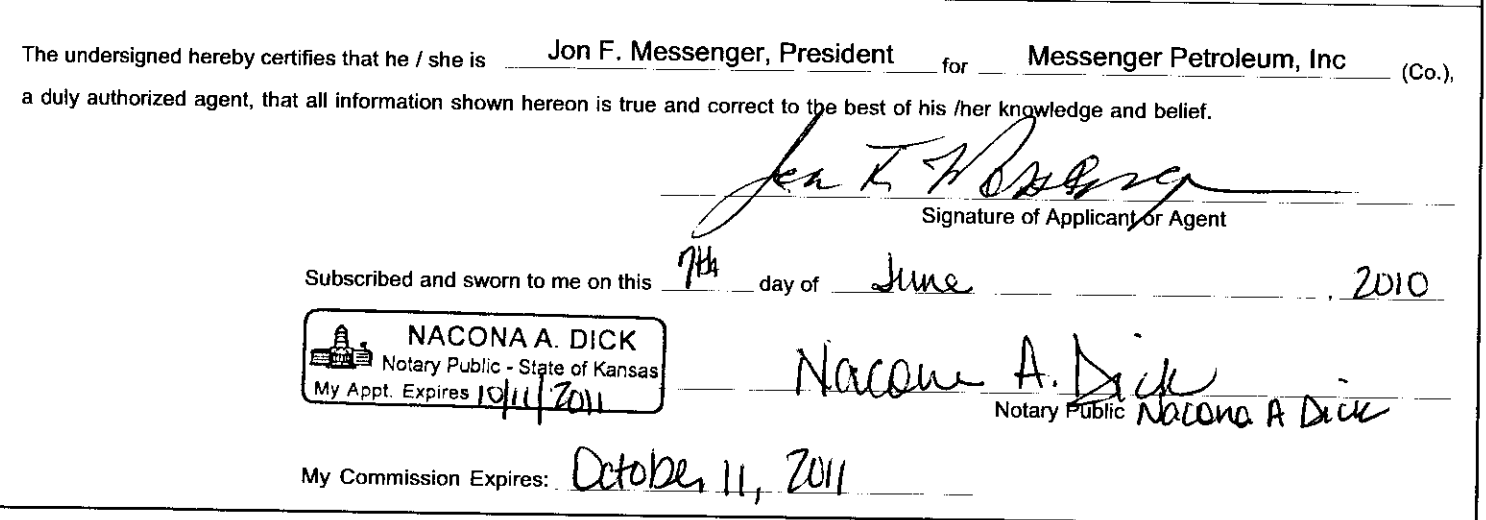 The undersigned hereby certifies that he / she is Jon F. Messenger, President for Messenger Petroleum, Inc (Co.),
a duly authorized agent, that all information shown hereon is true and correct to the best of his /her knowledge and belief.
Jon F. Messenger
Signature of Applicant or Agent
Subscribed and sworn to me on this 7th day of June , 2010
NACONA A. DICK
Notary Public - State of Kansas
My Appt. Expires 10/11/2011
Nacona A. Dick
Notary Public Nacona A Dick
My Commission Expires: October 11, 2011